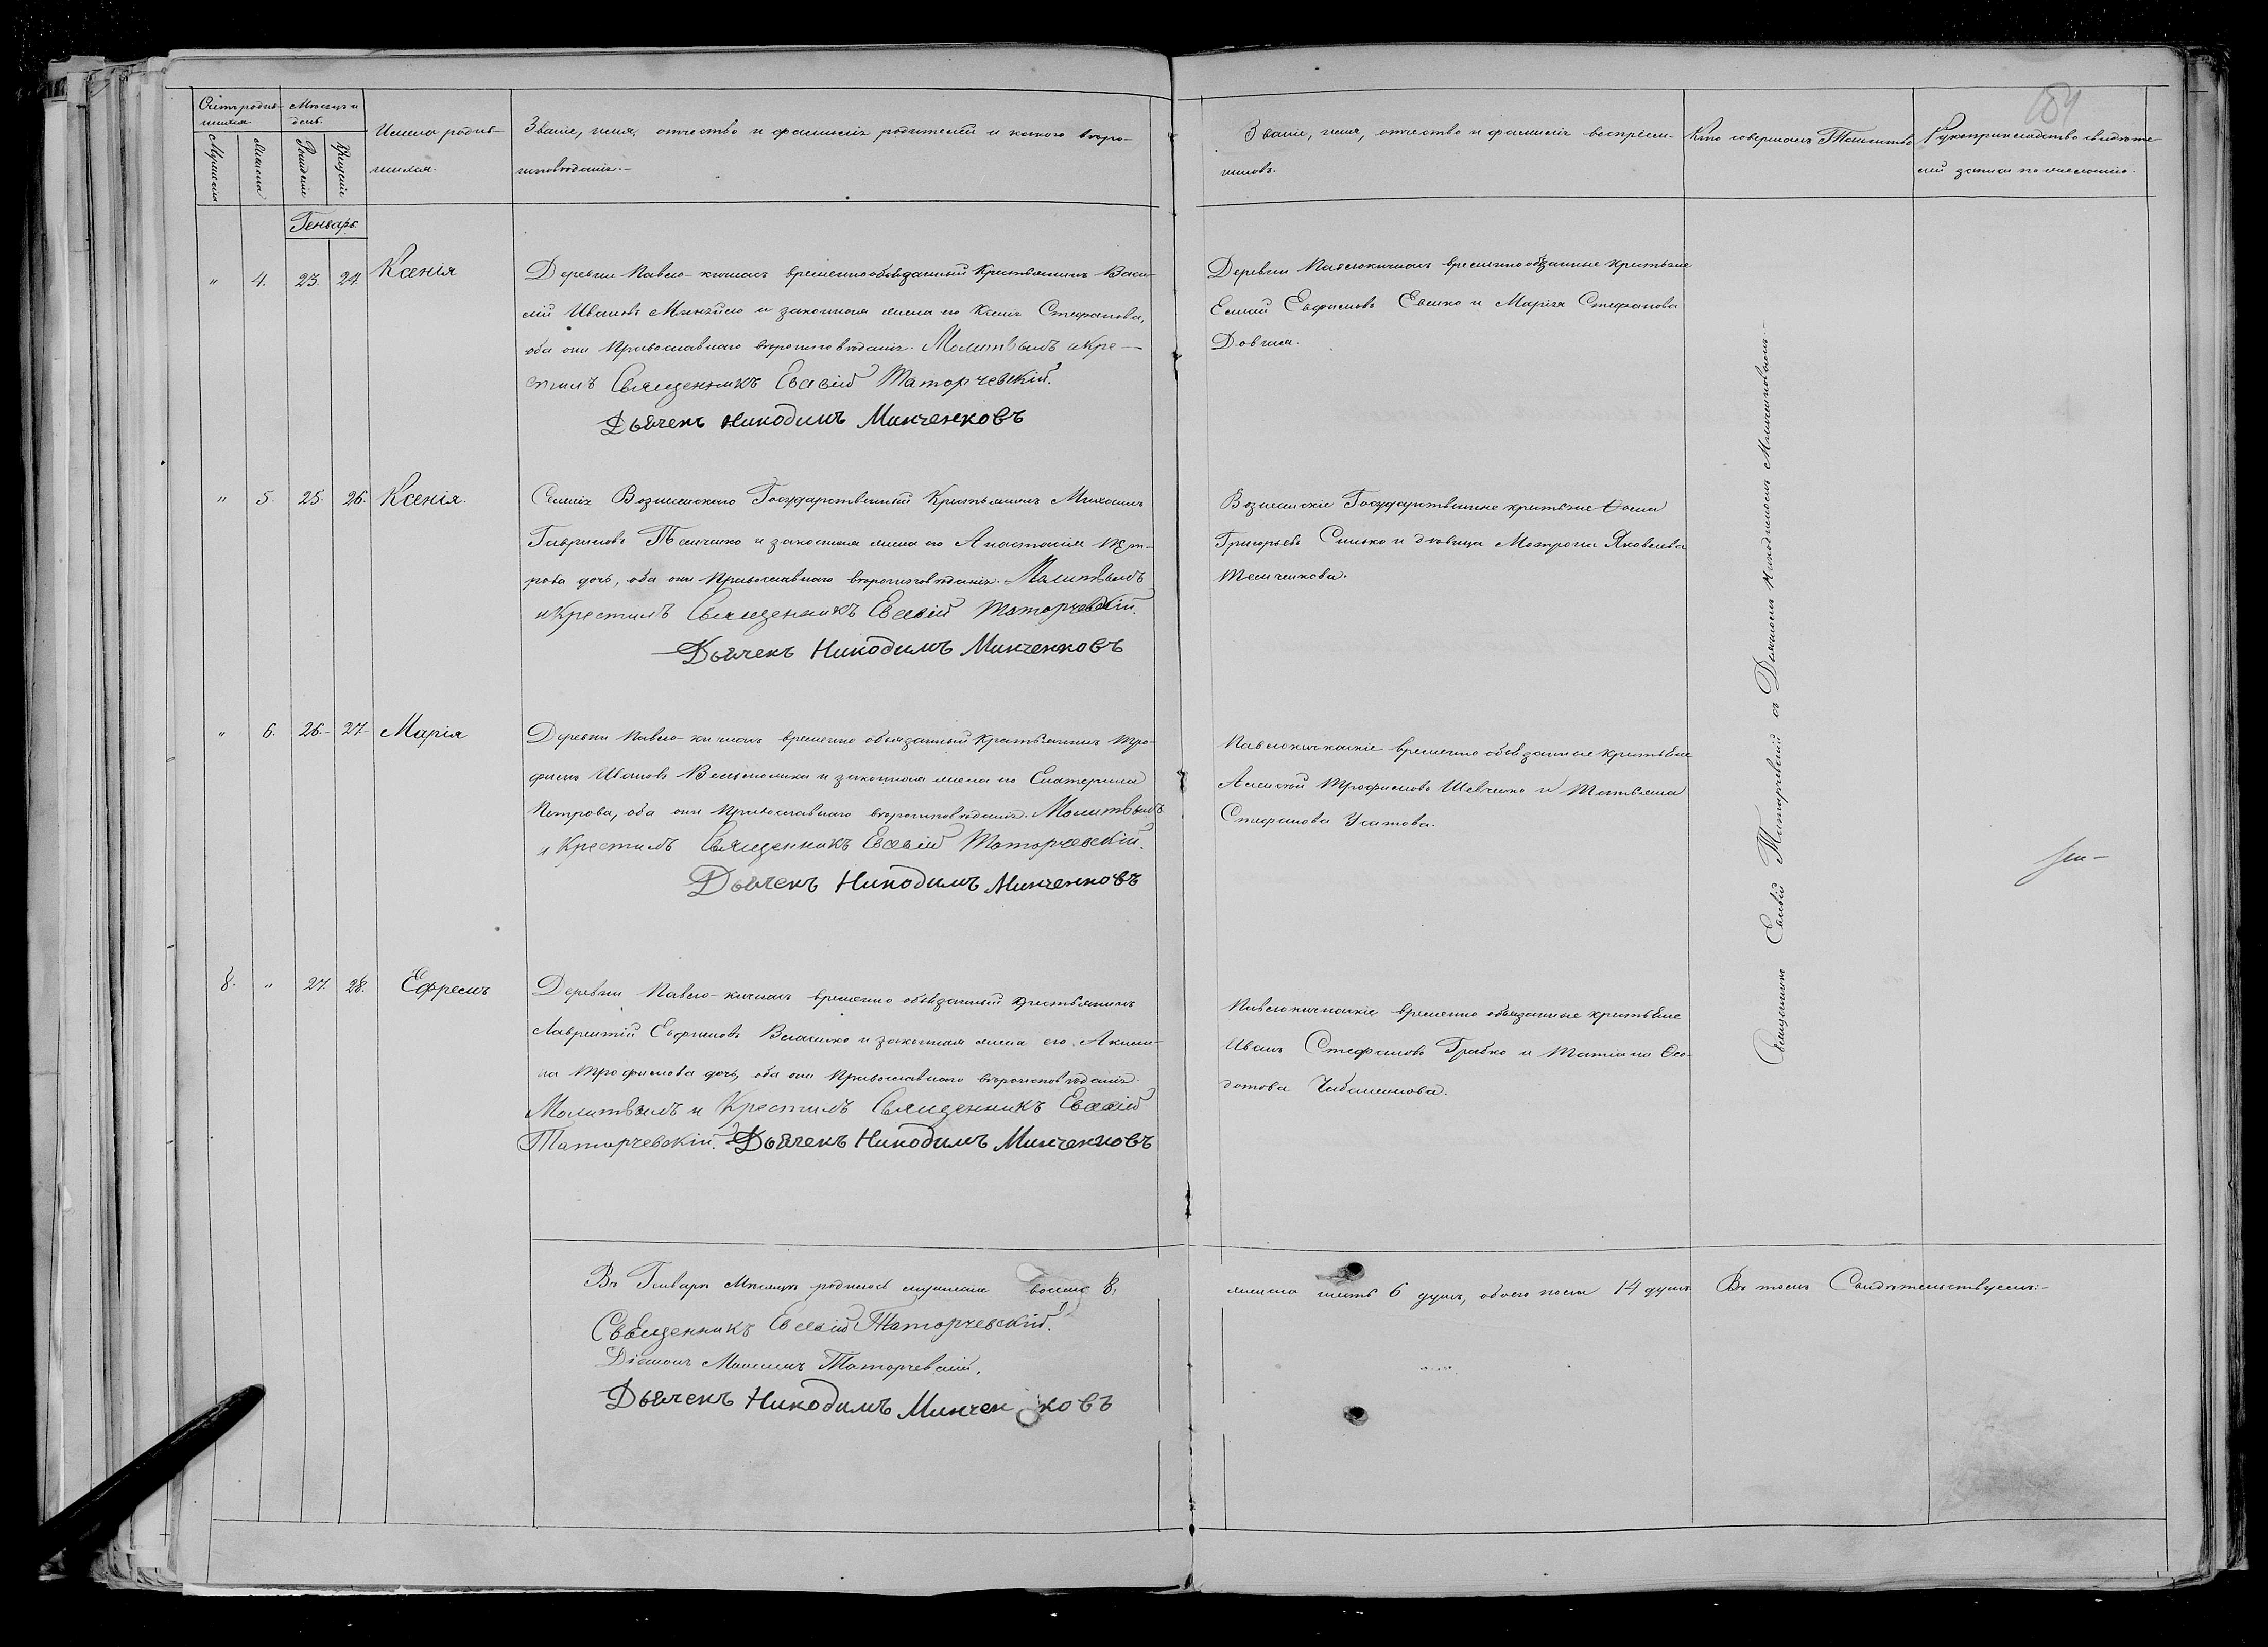 Счетъ родив-
шихся.
Мѣсяцъ и
день.
Мужеска
Женска
Рожденія
Крещенія
Имена родив-
шихся.
Званіе, имя, отчество и фамилія родителей и какого вѣро-
исповѣданія.-
Званіе, имя, отчество и фамилія воспріем-
никовъ.
Кто совершалъ Таинство
Рукоприкладство свидѣте-
лей записи по желанію.
Генварь
" 4. 23. 24. Ксенія
Деревни Павло- временнообязанный Крестьянинъ Васи-
лій Ивановъ и законная жена его Ксенія Стефанова,
оба они Православнаго вѣроисповѣданія. Молитвилъ и Кре-
стилъ Священникъ Евсевій Таторчевскій.
Дьячекъ Никодимъ Минченковъ
Деревни временнообязанные крестьяне
Евфимовъ и Марія Стефанова
" 5. 25. 26. Ксенія.
Селенія Вознесенскаго Государственный Крестьянинъ Михаилъ
Гавриловъ и законная жена его Анастасія Пет-
рова дочь, оба они Православнаго вѣроисповѣданія. Молитвилъ
и Крестилъ Священникъ Евсевій Таторчевскій.
Дьячекъ Никодимъ Минченковъ
Вознесенскіе Государственные крестьяне Ѳома
Григорьевъ и дѣвица Мотрона Яковлева
" 6. 26.- 27.- Марія
Деревни Павло- временно обязанный Крестьянинъ Тро-
фимъ Ивановъ и законная жена его Екатерина
Петрова, оба они Православнаго вѣроисповѣданія. Молитвилъ
и Крестилъ Священникъ Евсевій Таторчевскій.
Дьячекъ Никодимъ Минченковъ
временно обязанные крестьяне
Алексѣй Трофимовъ Шевченко и Татьяна
Стефанова Усатова.
8. " 27. 28. Ефремъ
Деревни Павло- временно обязанный крестьянинъ
Лаврентій Евфимовъ и законная жена его Акили-
на Трофимова дочь, оба они Православнаго вѣроисповѣданія.
Молитвилъ и Крестилъ Священникъ Евсевій
Таторчевскій. Дьячекъ Никодимъ Минченковъ
временно обязанные крестьяне
Иванъ Стефановъ и Татіана Ѳео-
дотова
Священникъ Евсевій Таторчевскій съ Дьячкомъ Никодимомъ Минченковымъ.-
Въ Генварѣ Мѣсяцѣ родилось мужеска восемь 8,
женска шесть 6 душъ, обоего пола 14 душъ Въ томъ Свидѣтельствуемъ:-
Священникъ Евсевій Таторчевскій.
Діаконъ Максимъ Таторчевскій.
Дьячекъ Никодимъ Минченковъ